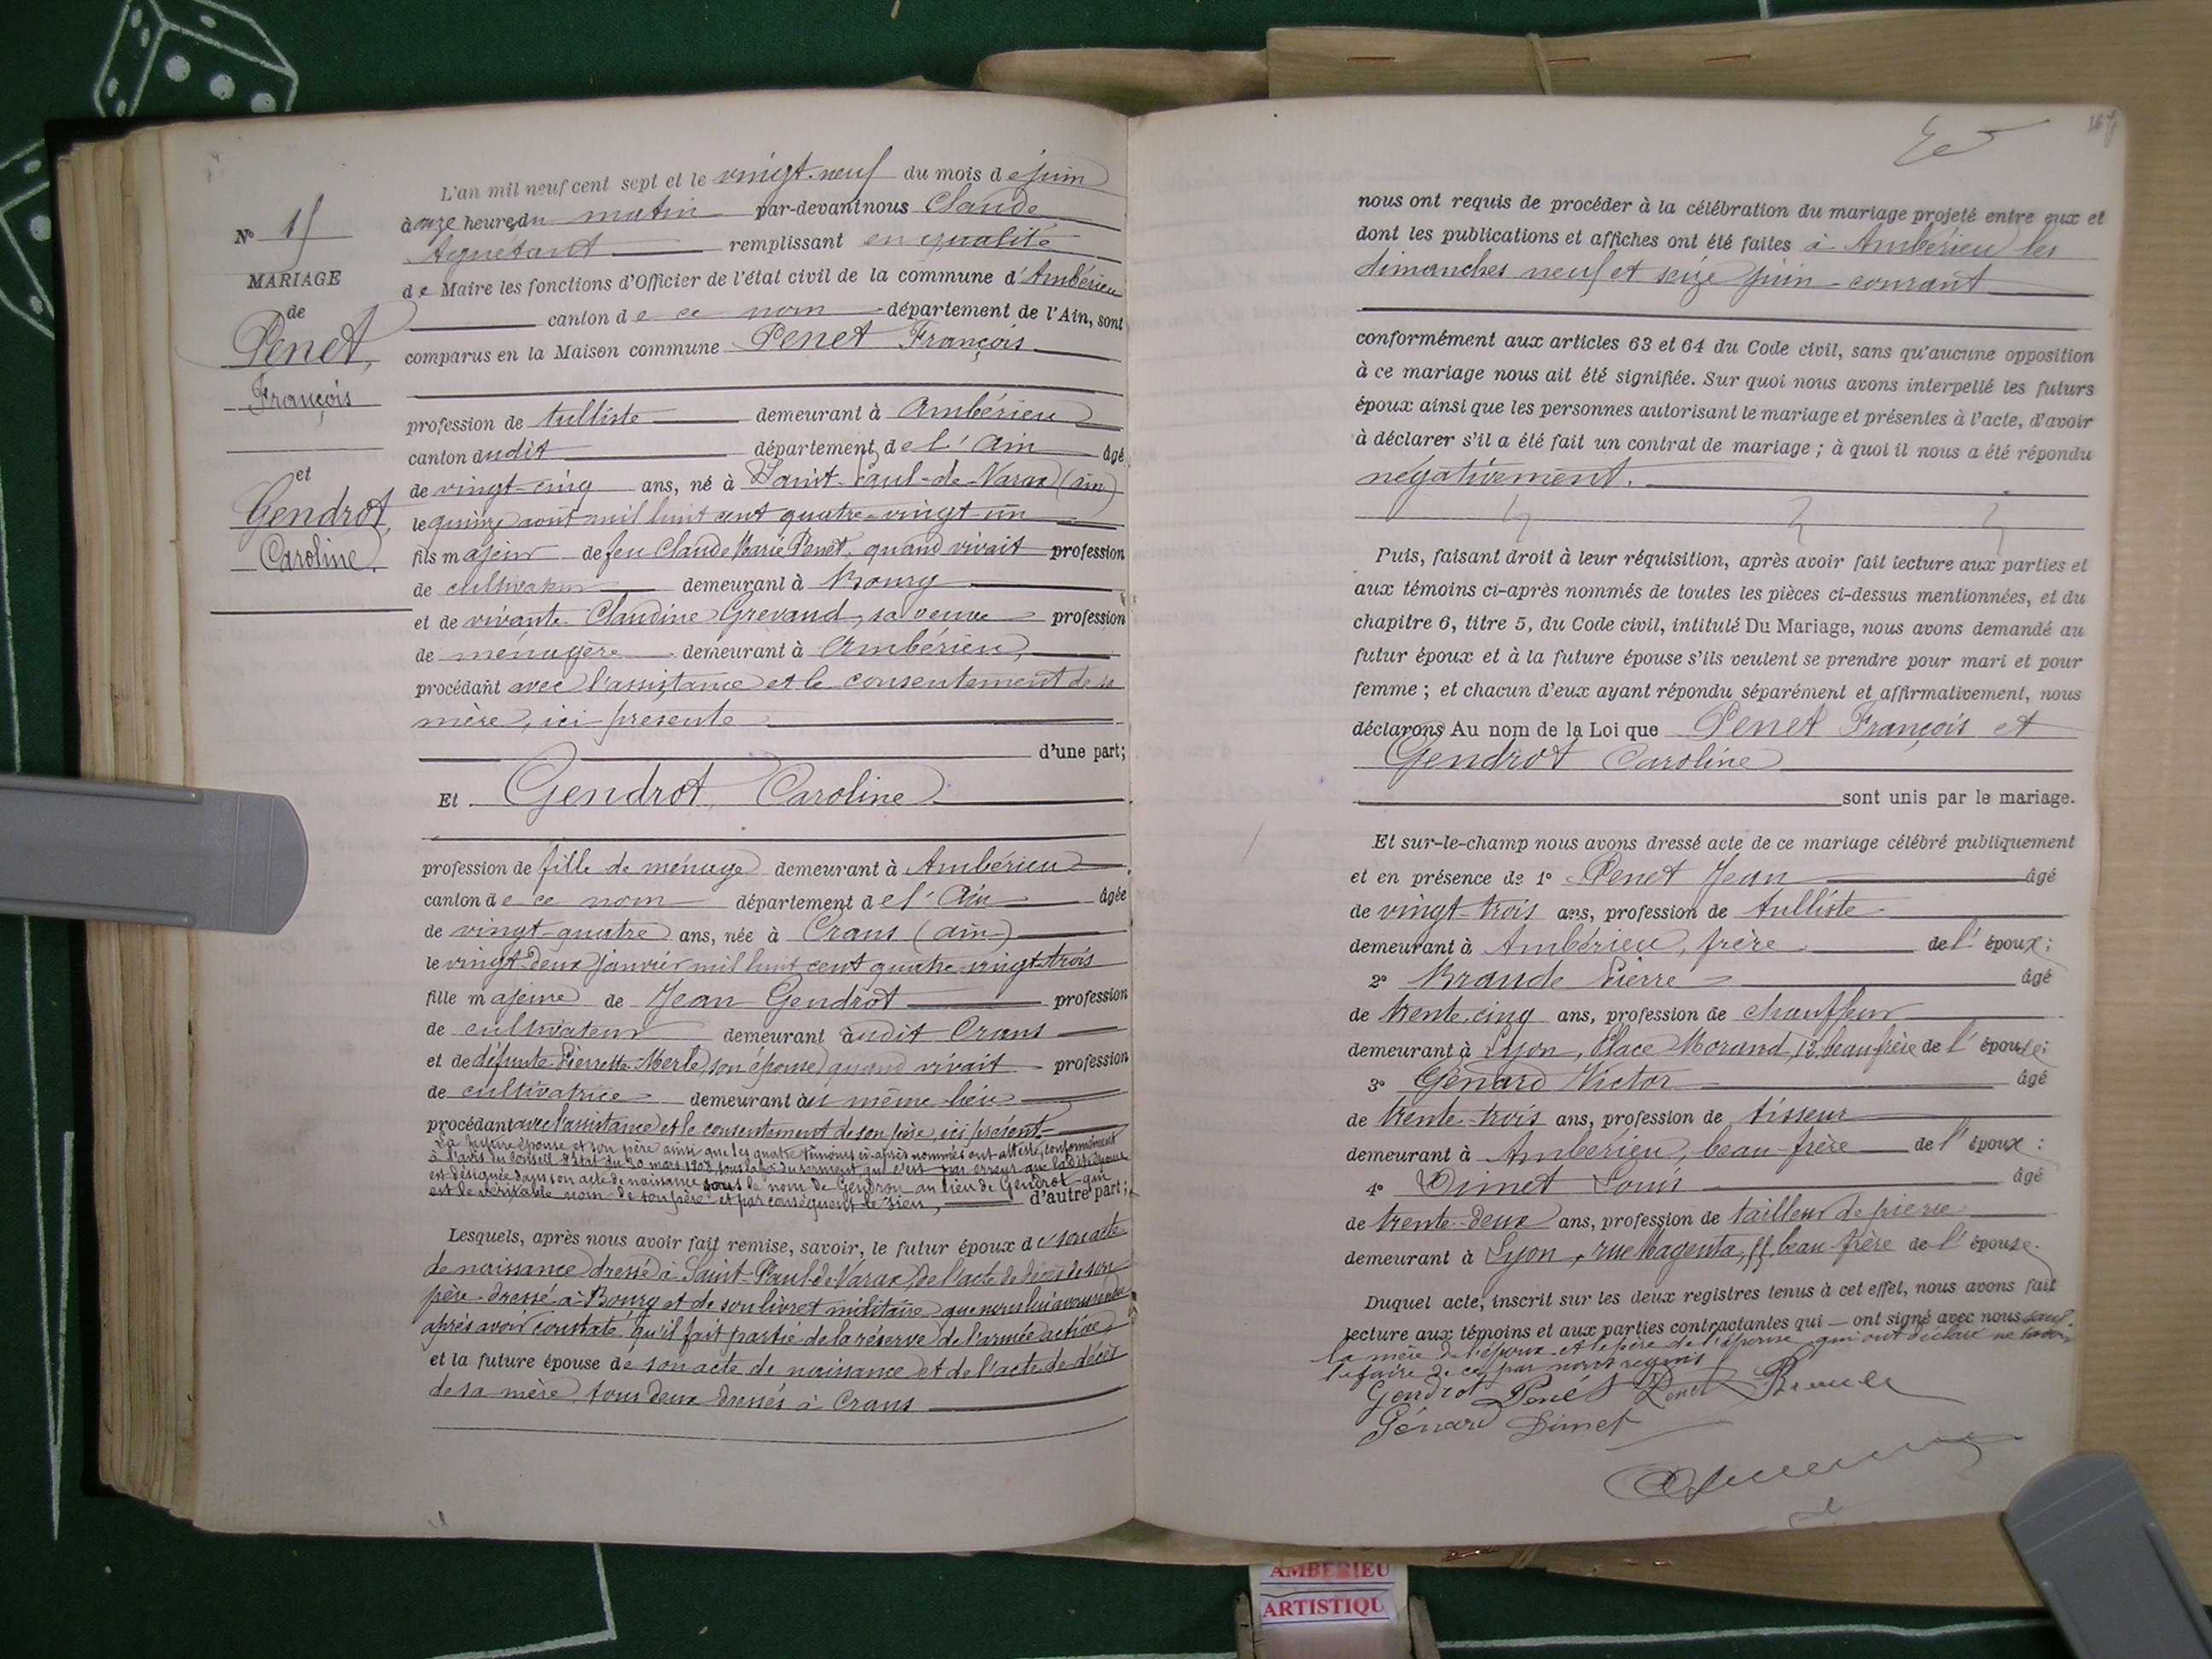 N° 15
MARIAGE
de
Penet,
François
et
Gendrot,
Caroline.
L'an mil neuf cent sept et le vingt-neuf du mois de juin
à onze heures du matin par-devant nous Claude
Aguétant remplissant en qualité
de Maire les fonctions d'Officier de l'état civil de la commune d'Ambérieu
canton de ce nom département de l'Ain, sont
comparus en la Maison commune Penet François
profession de tulliste demeurant à Ambérieu
canton dudit département de l'Ain âgé
de vingt-cinq ans, né à Saint-Paul-de-Varax (Ain)
le quinze août mil huit cent quatre-vingt-un
fils majeur de feu Claude Marie Penet, quand vivait profession
de cultivateur demeurant à Bourg
et de vivante Claudine Grevand, sa veuve profession
de ménagère demeurant à Ambérieu,
procédant avec l'assistance et le consentement de sa
mère, ici présente
d'une part;
Et Gendrot, Caroline
profession de fille de ménage demeurant à Ambérieu
canton de ce nom département de l'Ain âgée
de vingt-quatre ans, née à Crans (Ain)
le vingt-deux janvier mil huit cent quatre-vingt-trois
fille majeure de Jean Gendrot profession
de cultivateur demeurant audit Crans
et de défunte Pierrette Merle, son épouse quand vivait profession
de cultivatrice demeurant au même lieu
procédant avec l'assistance et le consentement de son père, ici présent.
La future épouse et son père ainsi que les quatre témoins ci-après nommés ont attesté, conformément
à l'avis du Conseil d'Etat du 30 mars 1808 sous la foi du serment que c'est par erreur que la dite épouse
est désignée dans son acte de naissance sous le nom de Gendron au lieu de Gendrot qui
est le véritable nom de son père et par conséquent le sien, d'autre part;
Lesquels, après nous avoir fait remise, savoir, le futur époux de son acte
de naissance dressé à Saint-Paul-de-Varax, de l'acte de décès de son
père dressé à Bourg et de son livret militaire que nous lui avons rendu
après avoir constaté qu'il fait partie de la réserve de l'armée active
et la future épouse de son acte de naissance et de l'acte de décès
de sa mère, tous deux dressés à Crans
nous ont requis de procéder à la célébration du mariage projeté entre eux et
dont les publications et affiches ont été faites à Ambérieu les
dimanches neuf et seize juin courant
conformément aux articles 63 et 64 du Code civil, sans qu'aucune opposition
à ce mariage nous ait été signifiée. Sur quoi nous avons interpellé les futurs
époux ainsi que les personnes autorisant le mariage et présentes à l'acte, d'avoir
à déclarer s'il a été fait un contrat de mariage ; à quoi il nous a été répondu
négativement.
Puis, faisant droit à leur réquisition, après avoir fait lecture aux parties et
aux témoins ci-après nommés de toutes les pièces ci-dessus mentionnées, et du
chapitre 6, titre 5, du Code civil, intitulé Du Mariage, nous avons demandé au
futur époux et à la future épouse s'ils veulent se prendre pour mari et pour
femme ; et chacun d'eux ayant répondu séparément et affirmativement, nous
déclarons Au nom de la Loi que Penet François et
Gendrot Caroline
sont unis par le mariage.
Et sur-le-champ nous avons dressé acte de ce mariage célébré publiquement
et en présence de 1° Penet Jean âgé
de vingt-trois ans, profession de tulliste
demeurant à Ambérieu, frère de l'époux;
2° Brande Pierre âgé
de trente-cinq ans, profession de chauffeur
demeurant à Lyon, Place Morand, 13, beau-frère de l'épouse;
3° Génard Victor âgé
de trente-trois ans, profession de tisseur
demeurant à Ambérieu, beau-frère de l'époux :
4° Dimet Louis âgé
de trente-deux ans, profession de tailleur de pierre
demeurant à Lyon, rue Magenta, 55, beau-frère de l'épouse.
Duquel acte, inscrit sur les deux registres tenus à cet effet, nous avons fait
lecture aux témoins et aux parties contractantes qui — ont signé avec nous sauf
la mère de l'époux et le père de l'épouse qui ont déclaré ne savoir
le faire de ce par nous requis
Gendrot Penet Penet
Génard Dimet
AMBERIEU
ARTISTIQU